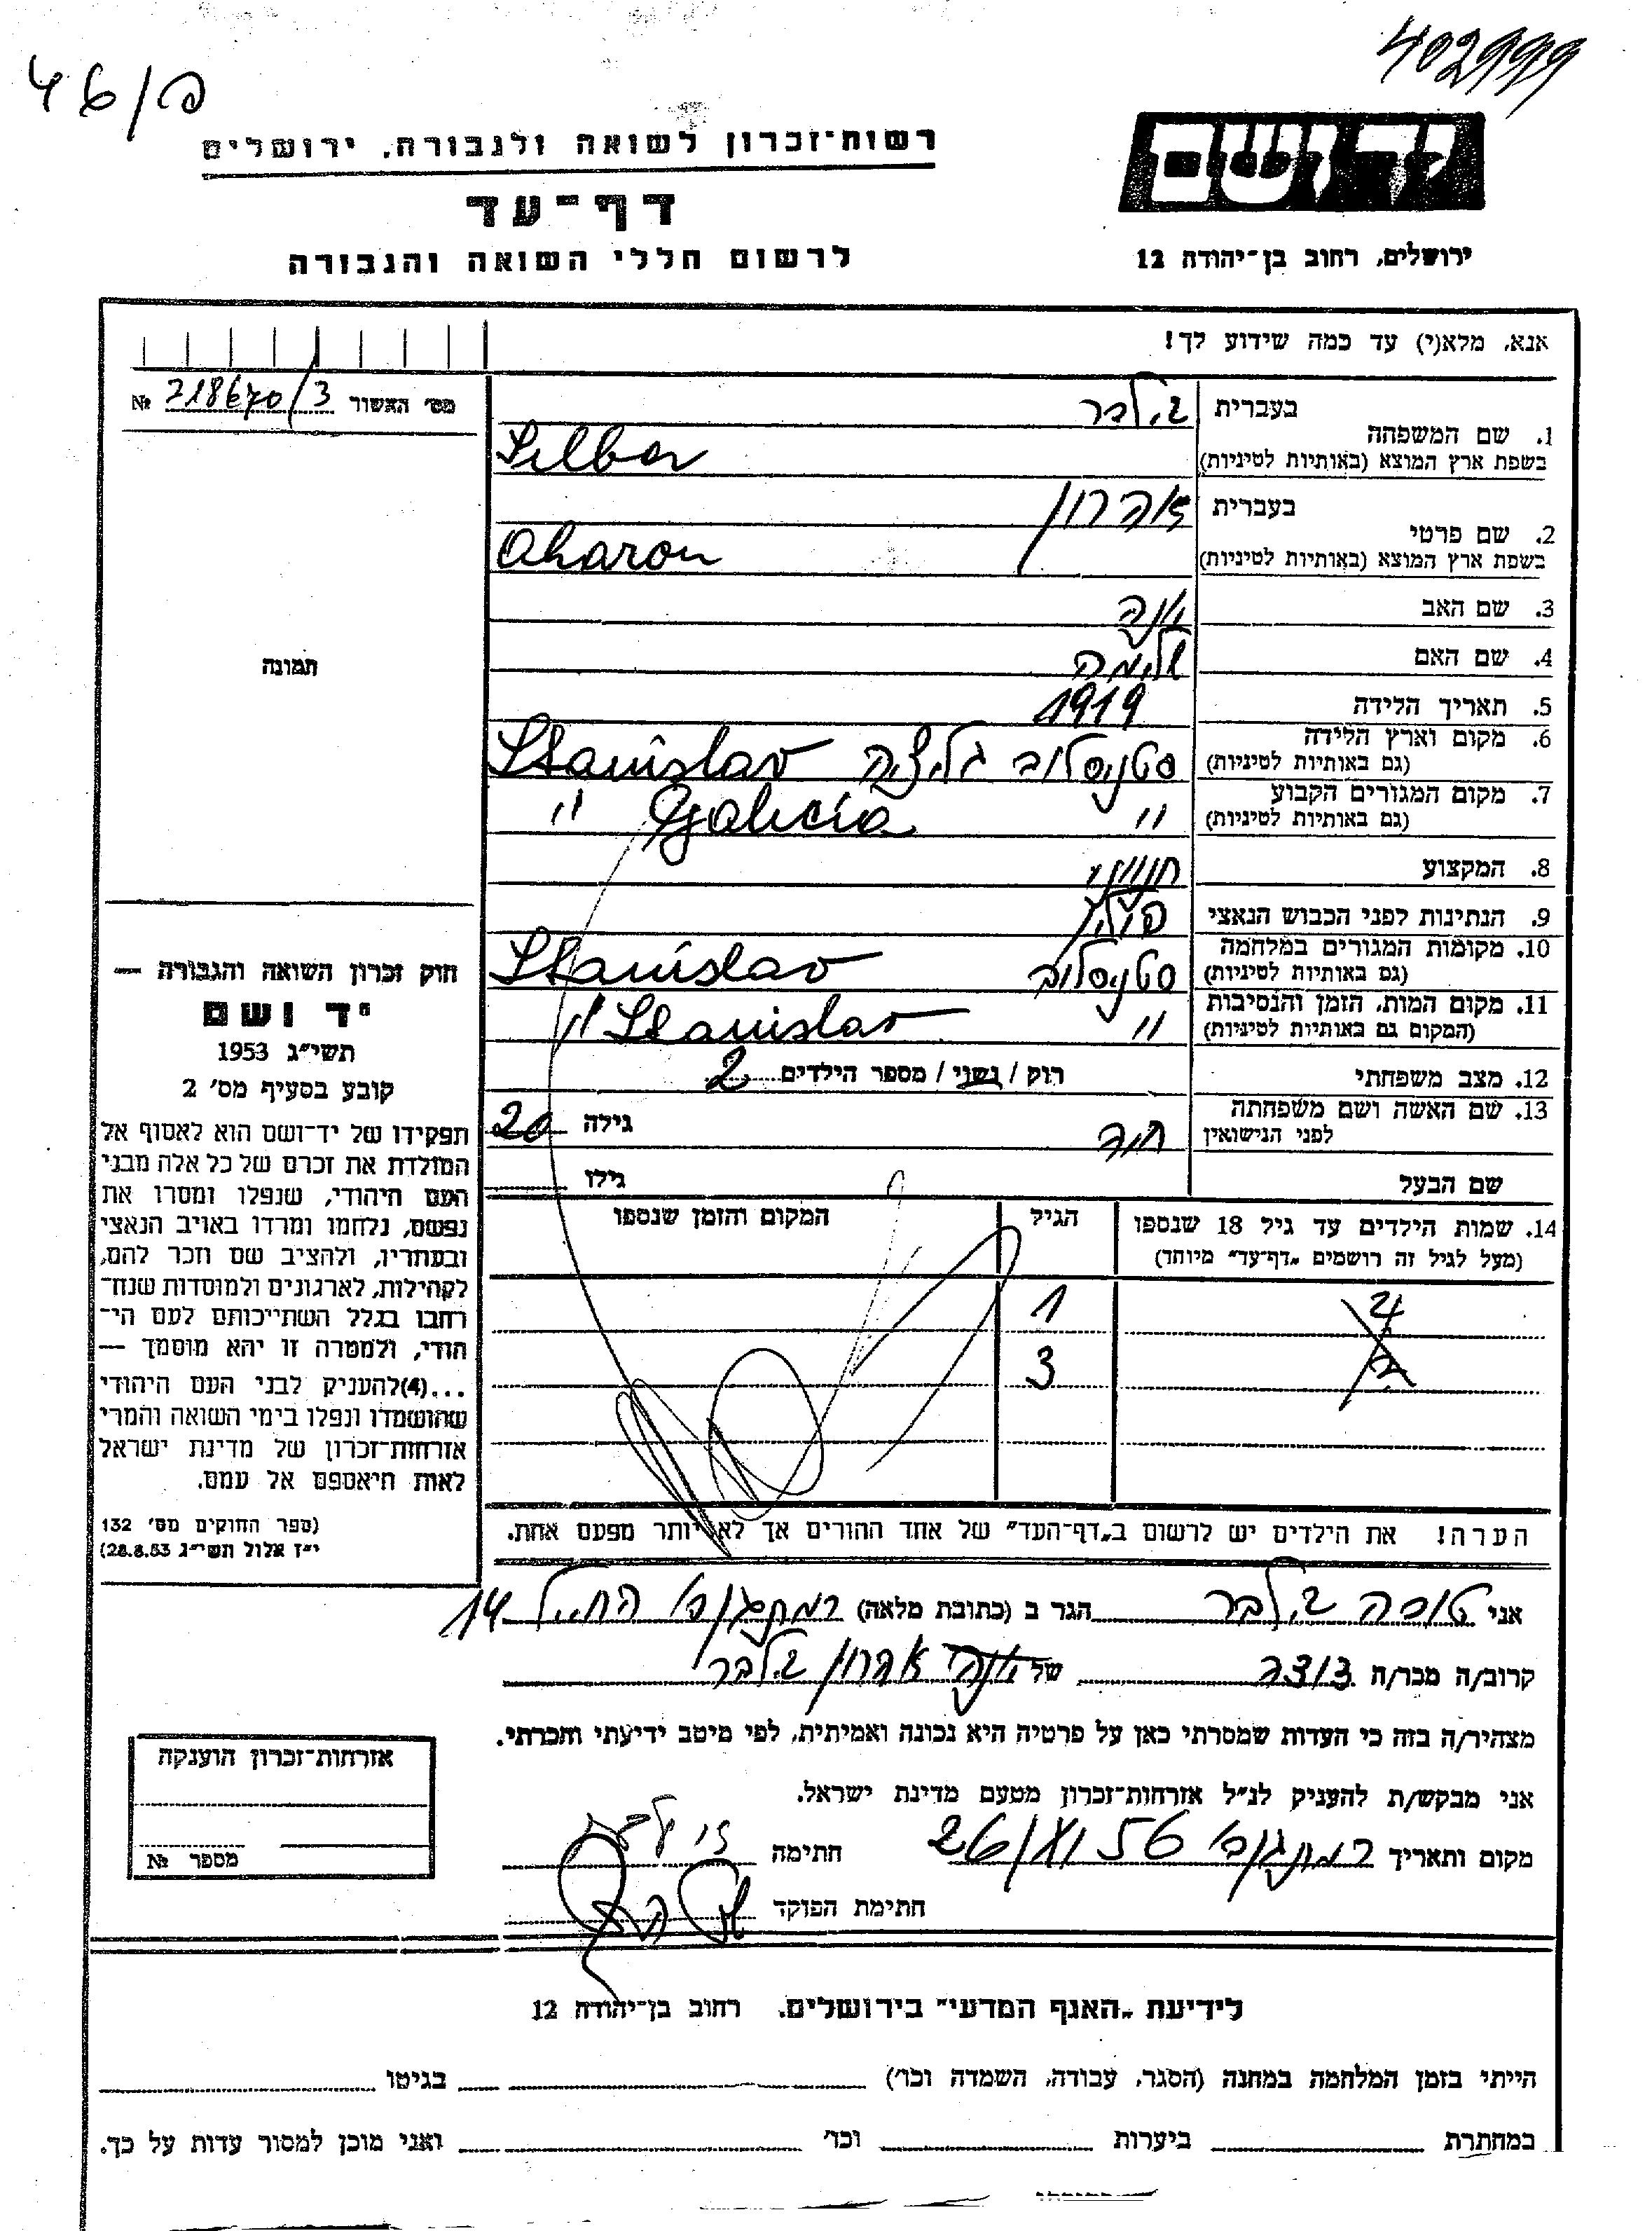 402999
46/פ
יד ושם
רשות־זכרון לשואה ולגבורה, ירושלים
דף־עד
לרשום חללי השואה והגבורה
ירושלים, רחוב בן־יהודה 12
אנא, מלא(י) עד כמה שידוע לך!
מס' האשור № 218670/3
בעברית זילבר
1. שם המשפחה
בשפת ארץ המוצא (באותיות לטיניות) Silber
בעברית אהרון
2. שם פרטי
בשפת ארץ המוצא (באותיות לטיניות) Aharon
3. שם האב יונה
4. שם האם
5. תאריך הלידה 1919
6. מקום וארץ הלידה
(גם באותיות לטיניות) סטניסלוב גליציה Stanislav
7. מקום המגורים הקבוע
(גם באותיות לטיניות) " Galicia "
8. המקצוע חנווני
9. הנתינות לפני הכבוש הנאצי פולין
10. מקומות המגורים במלחמה
(גם באותיות לטיניות) סטניסלוב Stanislav
11. מקום המות, הזמן והנסיבות
(המקום גם באותיות לטיניות) " Stanislav "
12. מצב משפחתי רוק / נשוי / מספר הילדים 2
13. שם האשה ושם משפחתה
לפני הנישואין חיה גילה 20
שם הבעל גילו
14. שמות הילדים עד גיל 18 שנספו הגיל המקום והזמן שנספו
(מעל לגיל זה רושמים „דף־עד" מיוחד)
1
3
הערה! את הילדים יש לרשום ב„דף־העד" של אחד ההורים אך לא יותר מפעם אחת.
תמונה
חוק זכרון השואה והגבורה —
יד ושם
תשי"ג 1953
קובע בסעיף מס' 2
תפקידו של יד־ושם הוא לאסוף אל
המולדת את זכרם של כל אלה מבני
העם היהודי, שנפלו ומסרו את
נפשם, נלחמו ומרדו באויב הנאצי
ובעוזריו, ולהציב שם וזכר להם,
לקהילות, לארגונים ולמוסדות שנח־
רבו בגלל השתייכותם לעם הי־
הודי, ולמטרה זו יהא מוסמך —
...(4) להעניק לבני העם היהודי
שהושמדו ונפלו בימי השואה והמרי
אזרחות־זכרון של מדינת ישראל
לאות היאספם אל עמם.
(ספר החוקים מס' 132
י"ז אלול תשי"ג 28.8.53)
אני טובה זילבר הגר ב (כתובת מלאה) רמת גן רח' החיל 14
קרוב/ה מכר/ה של יונה אהרון זילבר
מצהיר/ה בזה כי העדות שמסרתי כאן על פרטיה היא נכונה ואמיתית, לפי מיטב ידיעתי והכרתי.
אני מבקש/ת להעניק לנ"ל אזרחות־זכרון מטעם מדינת ישראל.
מקום ותאריך 26 56 חתימה
חתימת הפוקד
אזרחות־זכרון הוענקה
מספר №
לידיעת „האגף המדעי" בירושלים, רחוב בן־יהודה 12
הייתי בזמן המלחמה במחנה (הסגר, עבודה, השמדה וכו') בגיטו
במחתרת ביערות וכו' ואני מוכן למסור עדות על כך.